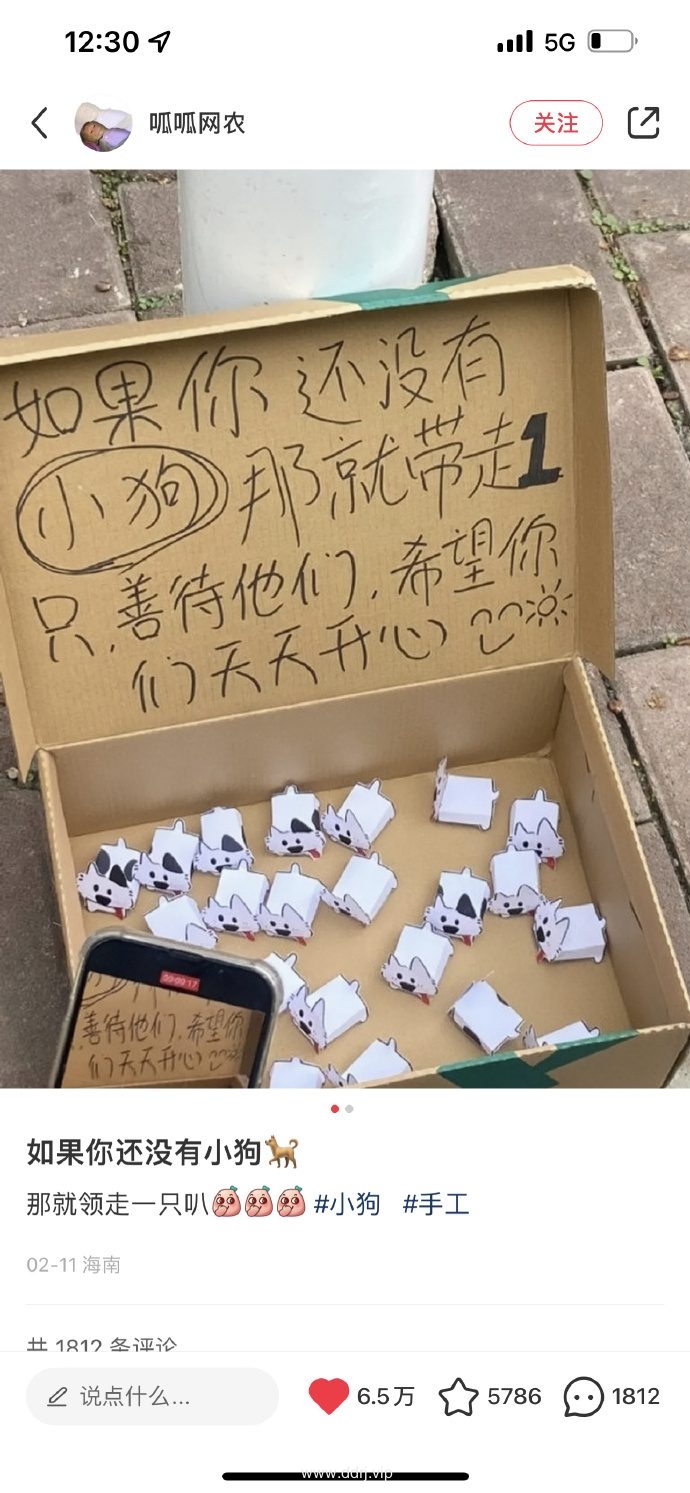 12:30
5G
呱呱网农
关注
如果你还没有
小狗 那就带走1
只,善待他们,希望你
们天天开心
00:00:17
善待他们,希望你
们天天开心
如果你还没有小狗🐕
那就领走一只叭 #小狗 #手工
02-11 海南
共 1812 条评论
说点什么...
6.5万
5786
1812
www.ddrj.vip